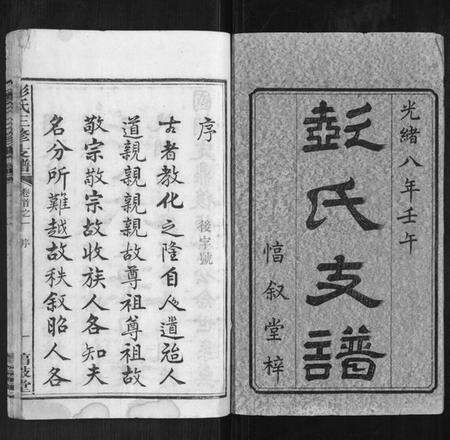 光緒八年壬午
彭氏支譜
惇叙堂梓
序
後字號
古者教化之隆自人道始人
道親親親親故尊祖尊祖故
敬宗敬宗故收族人各知夫
名分所難越故秩叙昭人各
彭氏三修支譜
卷首之一
序
一